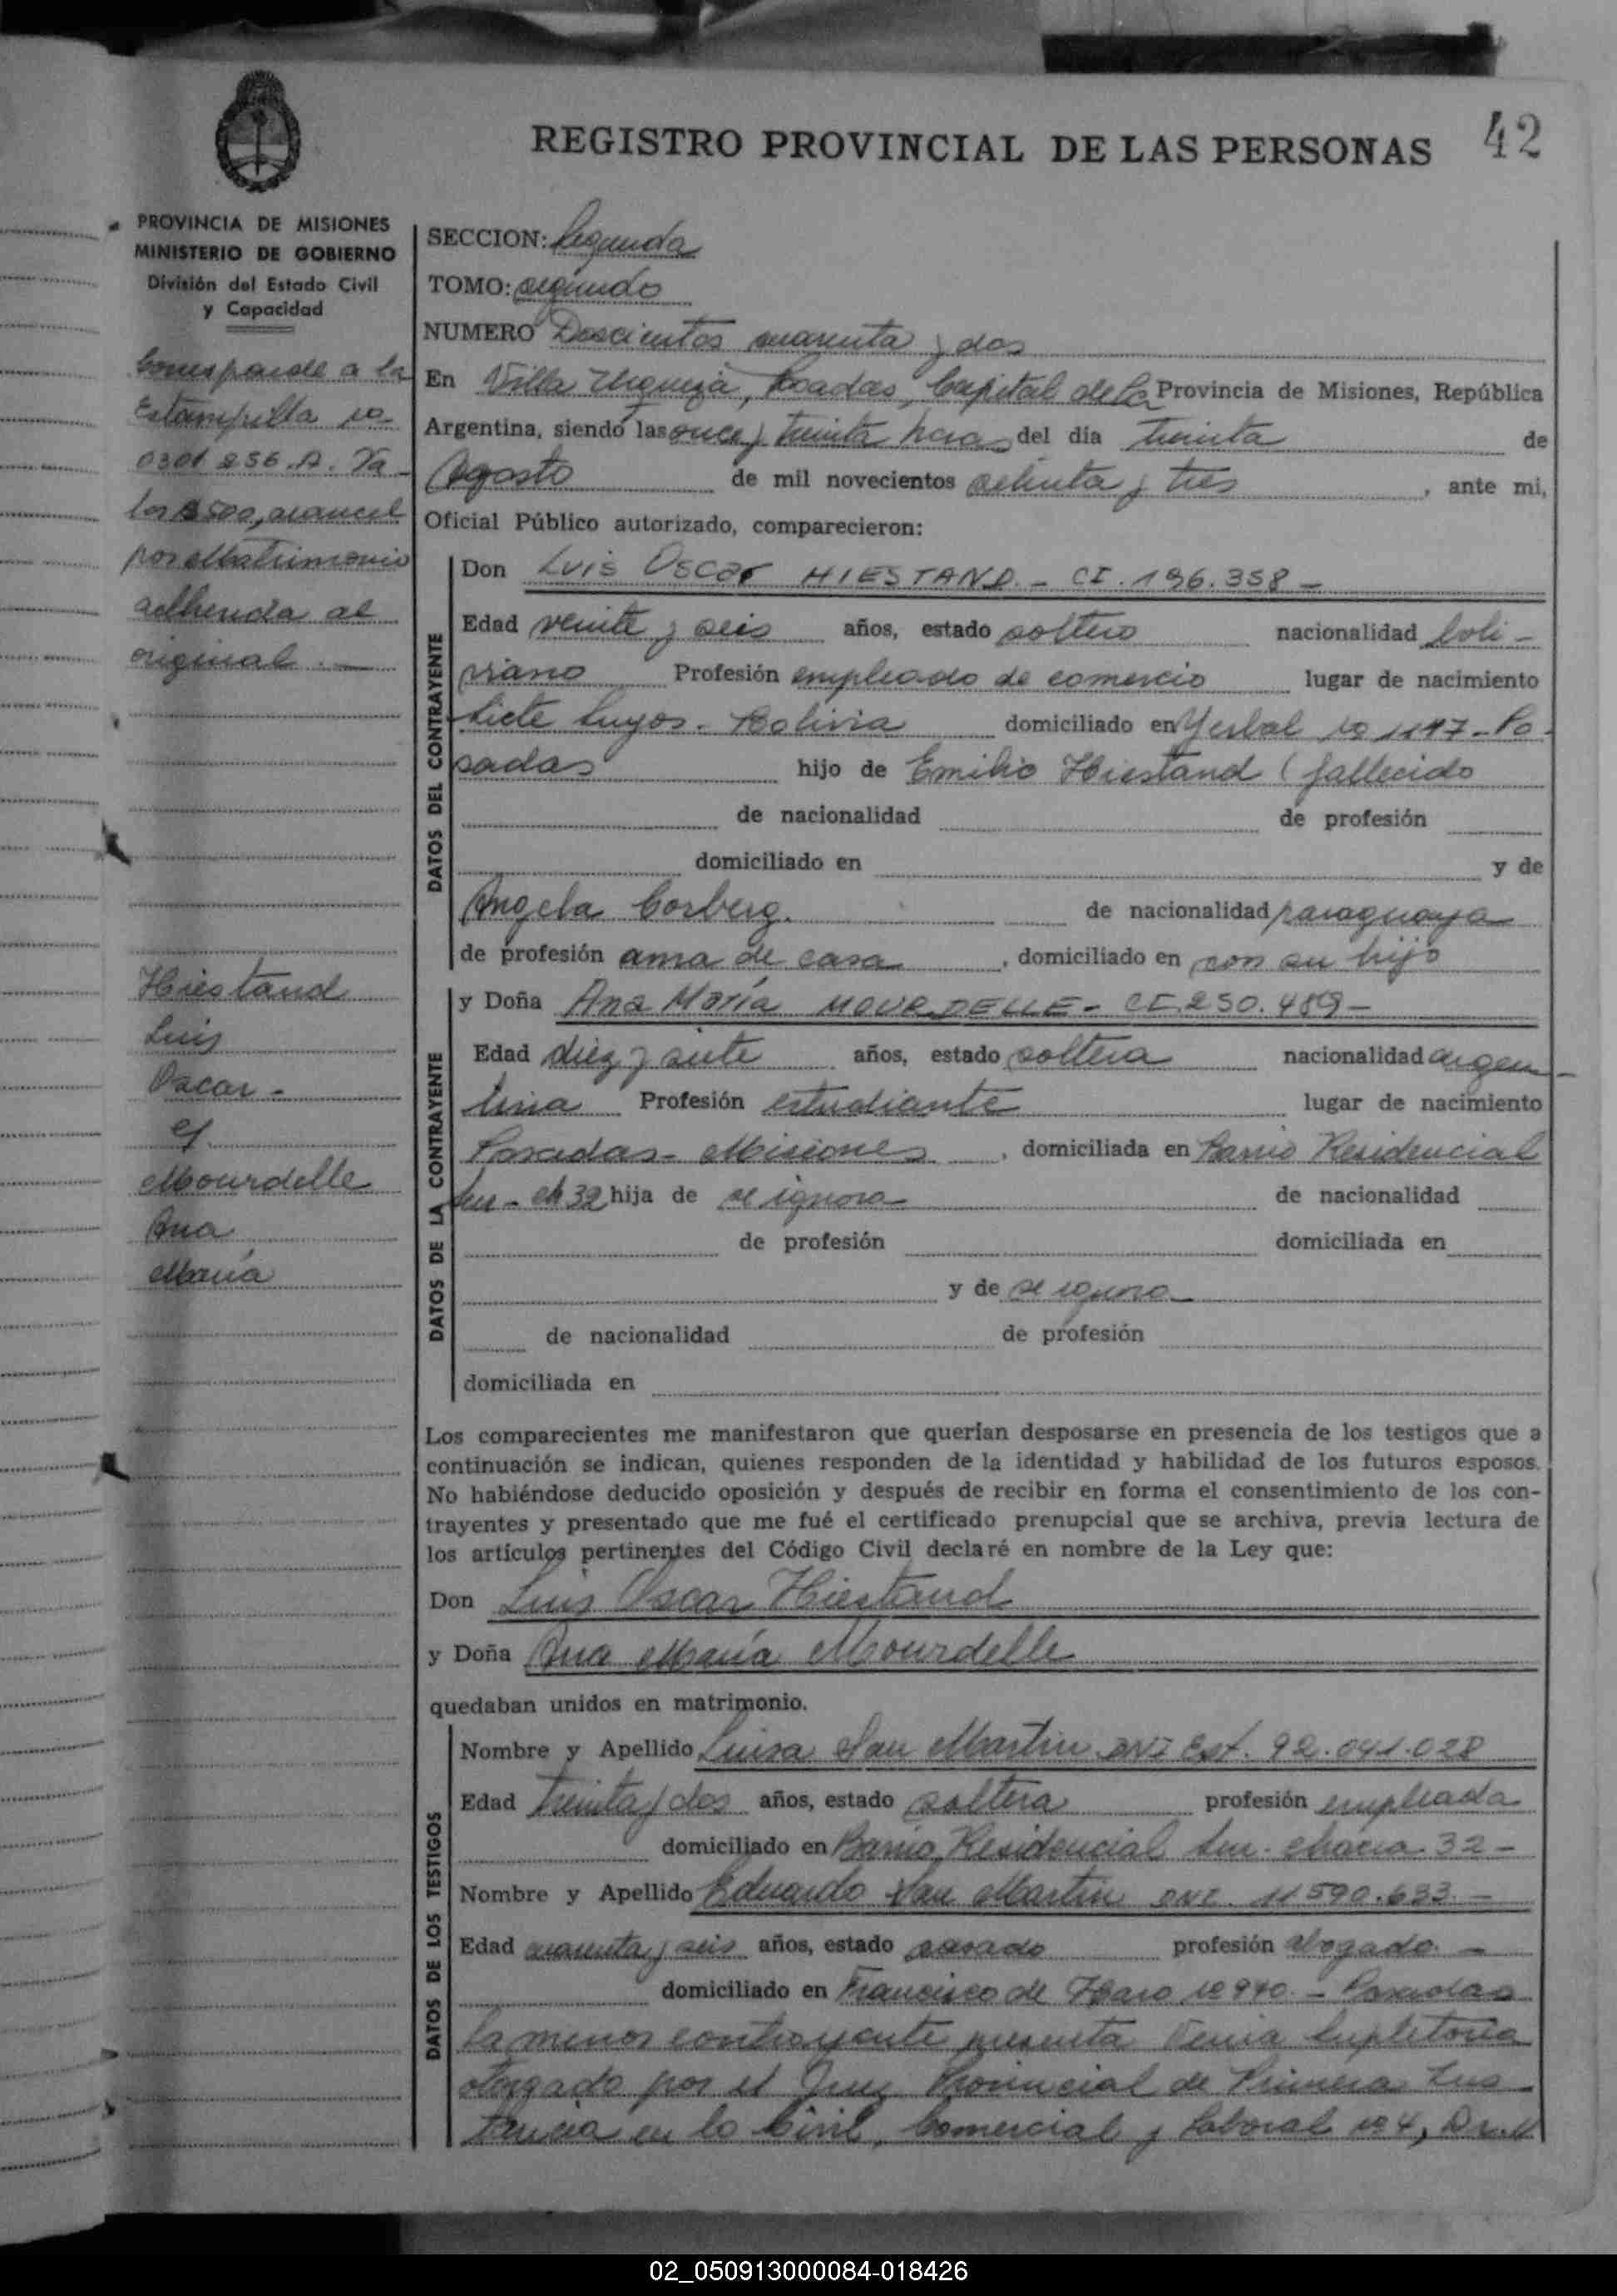 REGISTRO PROVINCIAL DE LAS PERSONAS 42
PROVINCIA DE MISIONES
MINISTERIO DE GOBIERNO
División del Estado Civil
y Capacidad
Corresponde a la
Estampilla no
0301256.A. Va
lor $500, arancel
por Matrimonio
adherida al
original.—
Hiestand
Luis
Oscar -
y
Mourdelle
Ana
María
SECCION: Segunda
TOMO: segundo
NUMERO Doscientos cuarenta y dos
En Villa Urquiza, Posadas, Capital de la Provincia de Misiones, República
Argentina, siendo las once y treinta horas del día treinta de
Agosto de mil novecientos setenta y tres, ante mi,
Oficial Público autorizado, comparecieron:
DATOS DEL CONTRAYENTE
Don Luis Oscar HIESTAND.- CI.196.358-
Edad veinte y seis años, estado soltero nacionalidad boli-
viano Profesión empleado de comercio lugar de nacimiento
Siete Suyos.- Bolivia domiciliado en Yerbal no 1147-Po-
sadas hijo de Emilio Hiestand (fallecido
de nacionalidad de profesión
domiciliado en y de
Angela Corberg. de nacionalidad paraguaya
de profesión ama de casa, domiciliado en con su hijo
DATOS DE LA CONTRAYENTE
y Doña Ana María MOURDELLE- CI.250.489-
Edad diez y siete años, estado soltera nacionalidad argen-
tina Profesión estudiante lugar de nacimiento
Posadas- Misiones, domiciliada en Barrio Residencial
Sur - ch 32 hija de se ignora de nacionalidad
de profesión domiciliada en
y de se ignora
de nacionalidad de profesión
domiciliada en
Los comparecientes me manifestaron que querían desposarse en presencia de los testigos que a
continuación se indican, quienes responden de la identidad y habilidad de los futuros esposos.
No habiéndose deducido oposición y después de recibir en forma el consentimiento de los con-
trayentes y presentado que me fué el certificado prenupcial que se archiva, previa lectura de
los artículos pertinentes del Código Civil declaré en nombre de la Ley que:
Don Luis Oscar Hiestand
y Doña Ana María Mourdelle
quedaban unidos en matrimonio.
DATOS DE LOS TESTIGOS
Nombre y Apellido Luisa San Martin DNI Ext. 92.041.028
Edad treinta y dos años, estado soltera profesión empleada
domiciliado en Barrio Residencial Sur. chacra 32-
Nombre y Apellido Eduardo San Martin DNI. 11590.633.-
Edad cuarenta y seis años, estado casado profesión abogado.-
domiciliado en Francisco de Haro no 940.- Posadas
La menor contrayente presenta Venia Supletoria
otorgado por el Juez Provincial de Primera Ins-
tancia en lo Civil, Comercial y Laboral no 4, Dr.
02_050913000084-018426